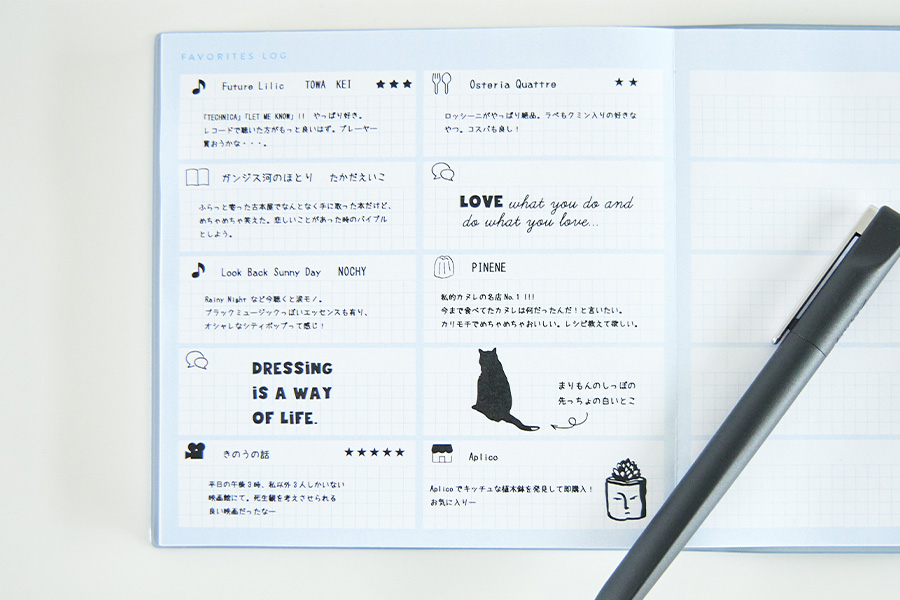 FAVORITES LOG
Future Lilic TOWA KEI ★★★
「TECHNICA」「LET ME KNOW」!! やっぱり好き。
レコードで聴いた方がもっと良いはず。プレーヤー
買おうかな・・・。
ガンジス河のほとり たかだえいこ
ふらっと寄った古本屋でなんとなく手に取った本だけど、
めちゃめちゃ笑えた。悲しいことがあった時のバイブル
としよう。
Look Back Sunny Day NOCHY
Rainy Night など今聴くと涙モノ。
ブラックミュージックっぽいエッセンスも有り、
オシャレなシティポップって感じ!
DRESSING
iS A WAY
OF LiFE.
きのうの話 ★★★★★
平日の午後3時、私以外3人しかいない
映画館にて。死生観を考えさせられる
良い映画だったなー
Osteria Quattre ★★
ロッシーニがやっぱり絶品。ラペもクミン入りの好きな
やつ。コスパも良し!
LOVE what you do and
do what you love...
PINENE
私的カヌレの名店 No.1 !!!
今まで食べてたカヌレは何だったんだ!と言いたい。
カリモチでめちゃめちゃおいしい。レシピ教えて欲しい。
まりもんのしっぽの
先っちょの白いとこ
Aplico
Aplico でキッチュな植木鉢を発見して即購入!
お気に入りー